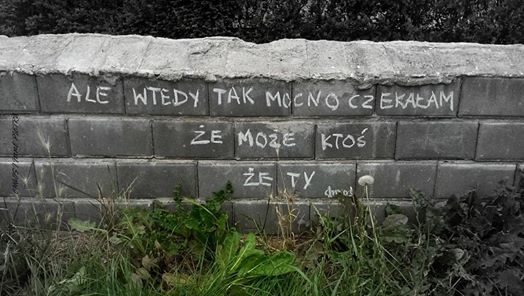 ALE WTEDY TAK MOCNO CZEKAŁAM
ŻE MOŻE KTOŚ
ŻE TY